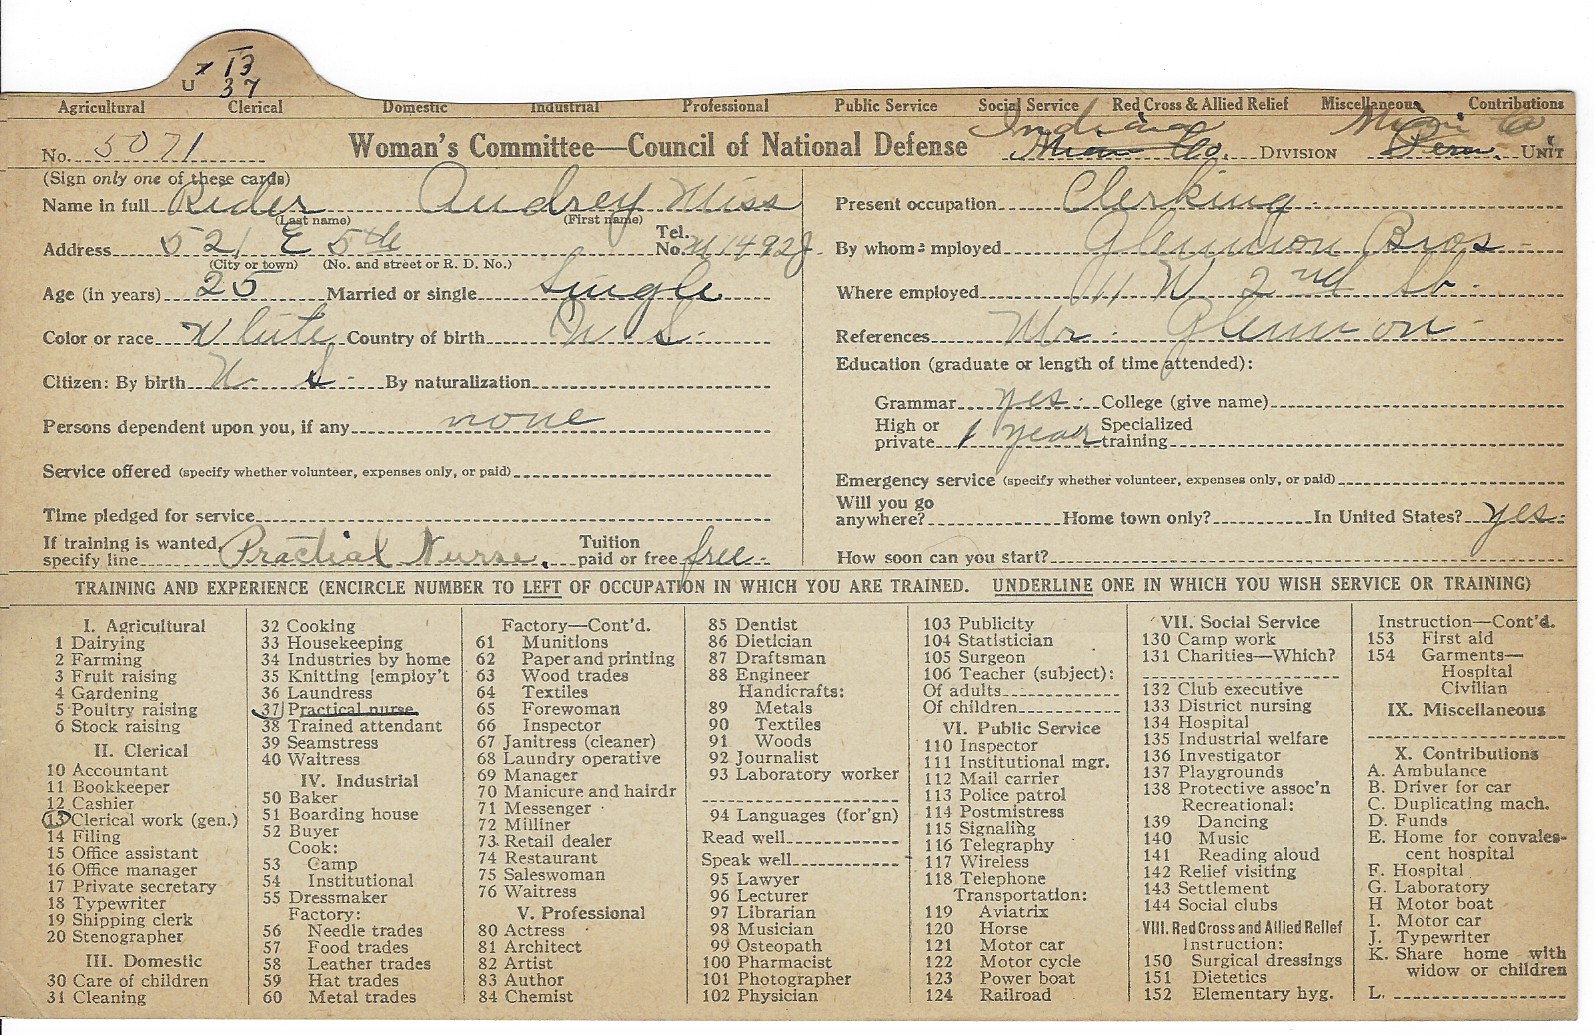 x 13
U 37
Agricultural Clerical Domestic Industrial Professional Public Service Social Service Red Cross & Allied Relief Miscellaneous Contributions
No. 5071 Woman's Committee—Council of National Defense Indiana Miami Co. DIVISION Miami Co Peru. UNIT
(Sign only one of these cards)
Name in full Rider Audrey Miss
(Last name) (First name)
Address 521 E 5th Tel. No. M 1492J
(City or town) (No. and street or R. D. No.)
Age (in years) 25 Married or single Single
Color or race White Country of birth U S.
Citizen: By birth U. S. By naturalization
Persons dependent upon you, if any none
Service offered (specify whether volunteer, expenses only, or paid)
Time pledged for service
If training is wanted, specify line Practial Nurse. Tuition paid or free free
Present occupation Clerking
By whom employed Glennon Bros
Where employed 111 W 2nd St.
References Mr. Glennon
Education (graduate or length of time attended):
Grammar yes. College (give name)
High or private 1 year Specialized training
Emergency service (specify whether volunteer, expenses only, or paid)
Will you go anywhere? Home town only? In United States? yes.
How soon can you start?
TRAINING AND EXPERIENCE (ENCIRCLE NUMBER TO LEFT OF OCCUPATION IN WHICH YOU ARE TRAINED. UNDERLINE ONE IN WHICH YOU WISH SERVICE OR TRAINING)
I. Agricultural
1 Dairying
2 Farming
3 Fruit raising
4 Gardening
5 Poultry raising
6 Stock raising
II. Clerical
10 Accountant
11 Bookkeeper
12 Cashier
13 Clerical work (gen.)
14 Filing
15 Office assistant
16 Office manager
17 Private secretary
18 Typewriter
19 Shipping clerk
20 Stenographer
III. Domestic
30 Care of children
31 Cleaning
32 Cooking
33 Housekeeping
34 Industries by home
35 Knitting [employ't
36 Laundress
37 Practical nurse
38 Trained attendant
39 Seamstress
40 Waitress
IV. Industrial
50 Baker
51 Boarding house
52 Buyer
Cook:
53 Camp
54 Institutional
55 Dressmaker
Factory:
56 Needle trades
57 Food trades
58 Leather trades
59 Hat trades
60 Metal trades
Factory—Cont'd.
61 Munitions
62 Paper and printing
63 Wood trades
64 Textiles
65 Forewoman
66 Inspector
67 Janitress (cleaner)
68 Laundry operative
69 Manager
70 Manicure and hairdr
71 Messenger
72 Milliner
73 Retail dealer
74 Restaurant
75 Saleswoman
76 Waitress
V. Professional
80 Actress
81 Architect
82 Artist
83 Author
84 Chemist
85 Dentist
86 Dietician
87 Draftsman
88 Engineer
Handicrafts:
89 Metals
90 Textiles
91 Woods
92 Journalist
93 Laboratory worker
94 Languages (for'gn)
Read well
Speak well
95 Lawyer
96 Lecturer
97 Librarian
98 Musician
99 Osteopath
100 Pharmacist
101 Photographer
102 Physician
103 Publicity
104 Statistician
105 Surgeon
106 Teacher (subject):
Of adults
Of children
VI. Public Service
110 Inspector
111 Institutional mgr.
112 Mail carrier
113 Police patrol
114 Postmistress
115 Signaling
116 Telegraphy
117 Wireless
118 Telephone
Transportation:
119 Aviatrix
120 Horse
121 Motor car
122 Motor cycle
123 Power boat
124 Railroad
VII. Social Service
130 Camp work
131 Charities—Which?
132 Club executive
133 District nursing
134 Hospital
135 Industrial welfare
136 Investigator
137 Playgrounds
138 Protective assoc'n
Recreational:
139 Dancing
140 Music
141 Reading aloud
142 Relief visiting
143 Settlement
144 Social clubs
VIII. Red Cross and Allied Relief
Instruction:
150 Surgical dressings
151 Dietetics
152 Elementary hyg.
Instruction—Cont'd.
153 First aid
154 Garments—
Hospital
Civilian
IX. Miscellaneous
X. Contributions
A. Ambulance
B. Driver for car
C. Duplicating mach.
D. Funds
E. Home for convales-
cent hospital
F. Hospital
G. Laboratory
H Motor boat
I. Motor car
J. Typewriter
K. Share home with
widow or children
L.